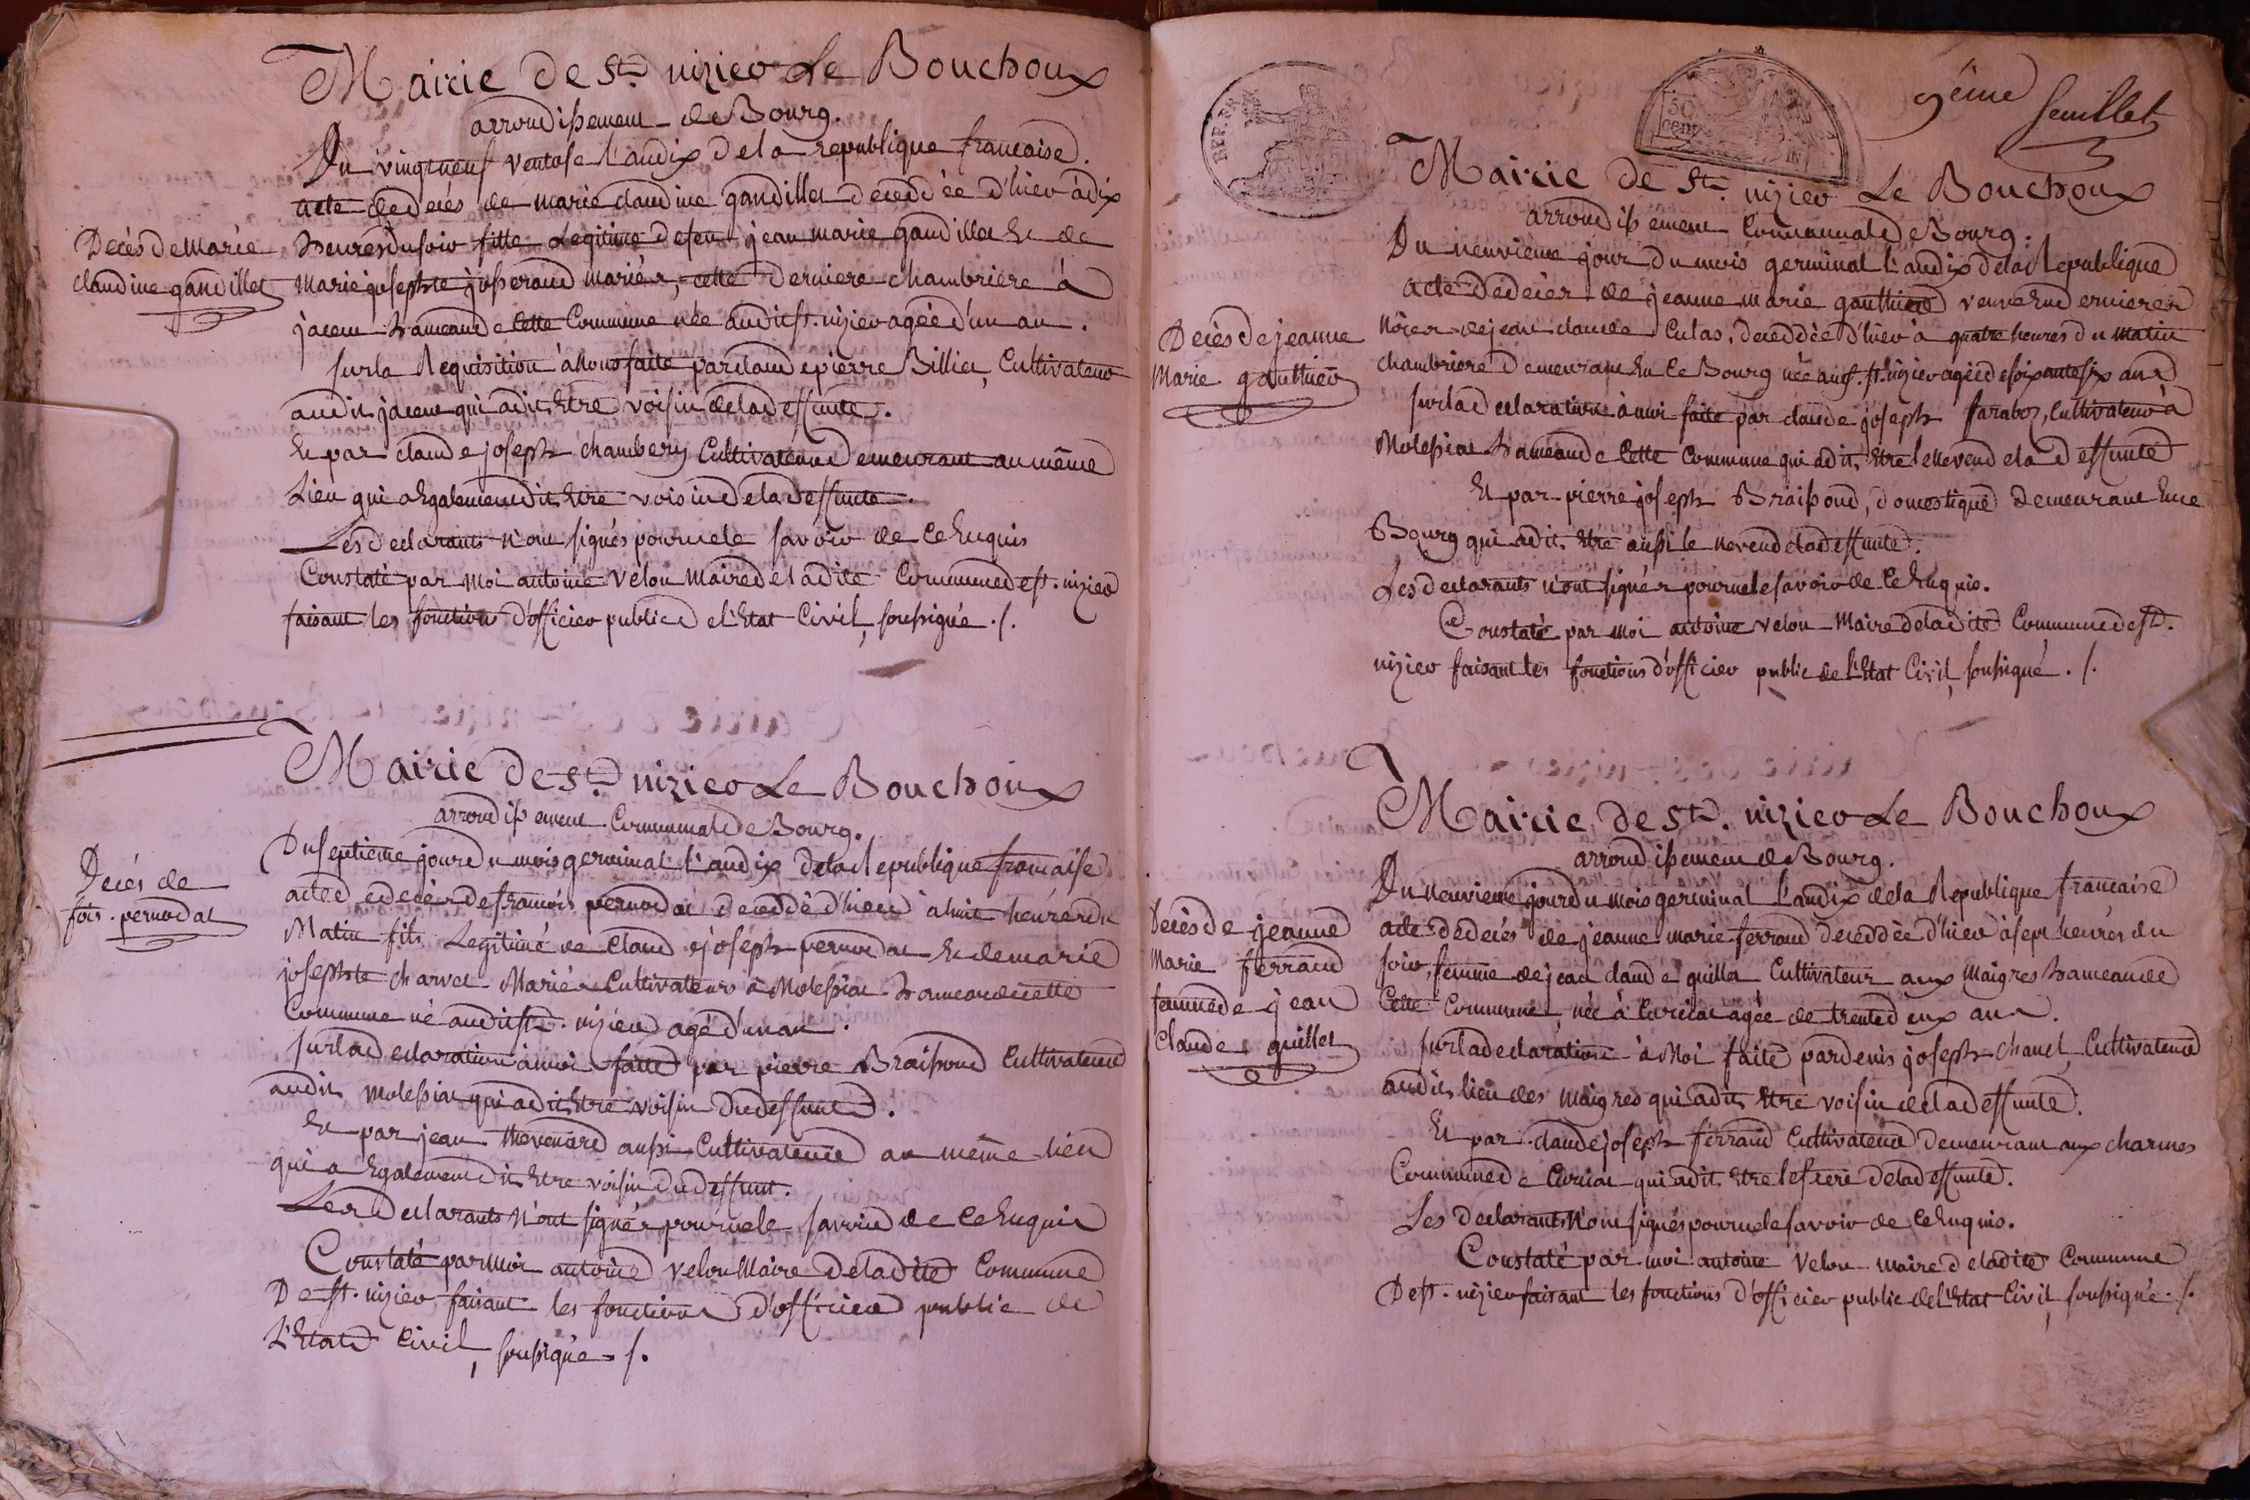 Mairie de St. nizier Le Bouchoux
arrondissement de Bourg.
Du vingt neuf ventose L'an dix de la republique francaise.
acte de decés de marie claudine gandillet decedée d'hier à dix
Decès de Marie
claudine gandillet
heures du soir fille Legitime de feu jean marie gandillet Et de
marie josephte josserand mariés, cette derniere chambriere à
jacem hameau de cette Commune née audit st. nizier agée d'un an.
sur la Requisition à Nous faite par claude pierre Billiet, Cultivateur
audit jacem qui a dit Etre voisin de la deffunte.
Et par claude joseph chambery Cultivateur demeurant au même
Lieu qui a Egalement dit Etre voisin de la deffunte.
Les declarants n'ont signés pour ne le savoir de ce Enquis
Constaté par moi antoine velon maire de la dite Commune de st. nizier
faisant les fonctions d'officier public de l'Etat Civil, soussigné ./.
Mairie de St. nizier Le Bouchoux
arrondissement Communal de Bourg.
Du septieme jour du mois germinal L'an dix de la Republique francaise
Decés de
fois. pernodat
acte de decés de francois pernodat decedé d'hier à huit heures du
Matin fils Legitime de Claude joseph pernodat Et de marie
josephte charvet Mariés Cultivateurs à Molessiat hameau de cette
Commune né audit St. nizier agé d'un an.
sur la declaration à moi faite par pierre Braissoud Cultivateur
audit Molessiat qui a dit Etre voisin du deffunt.
Et par jean thevenard aussi Cultivateur au même lieu
qui a Egalement dit Etre voisin du deffunt.
Les Declarants N'ont signés pour ne le savoir de ce Enquis
Constaté par moi antoine velon Maire de la dite Commune
De st. nizier faisant les fonctions d'officier public de
L'Etat Civil, soussigné ./.
REP.
50
cent
9ème
feuillet
Mairie de St. nizier Le Bouchoux
arrondissement Communal de Bourg.
Du neuvieme jour du mois germinal L'an dix de la Republique
acte de decés de jeanne marie gauthier veuve En dernieres
Decès de jeanne
Marie gauthier
Nôces de jean claude Culas, decedée d'hier à quatre heures du matin
chambriere demeurant En ce Bourg née audit st. nizier agée de soixante six ans
sur la declaration à moi faite par claude joseph faraboz, Cultivateur à
Molessiat hameau de cette Commune qui a dit Etre le neveu de la deffunte
Et par pierre joseph Braissoud, domestique demeurant En ce
Bourg qui a dit Etre aussi le neveu de la deffunte.
Les declarants n'ont signés pour ne le savoir de ce Enquis.
Constaté par moi antoine velon Maire de la dite Commune de st.
nizier faisant les fonctions d'officier public de l'Etat Civil, soussigné ./.
Mairie de St. nizier Le Bouchoux
arrondissement de Bourg.
Du neuvieme jour du mois germinal L'an dix de la Republique francaise
Decès de jeanne
Marie ferrand
femme de jean
Claude guillet
acte de decés de jeanne marie ferrand decedée d'hier à sept heures du
soir, femme de jean claude guillet Cultivateur aux Maigres hameau de
Cette Commune, née à Curciat agée de trente deux ans.
sur la declaration à Moi faite par denis joseph chanel, Cultivateur
audit lieu des Maigres qui a dit Etre voisin de la deffunte.
Et par claude joseph ferrand Cultivateur demeurant aux charmes
Commune de Curciat qui a dit Etre le frere de la deffunte.
Les declarants N'ont signés pour ne le savoir de ce Enquis.
Constaté par moi antoine velon maire de la dite Commune
De st. nizier faisant les fonctions d'officier public de l'Etat Civil, soussigné ./.